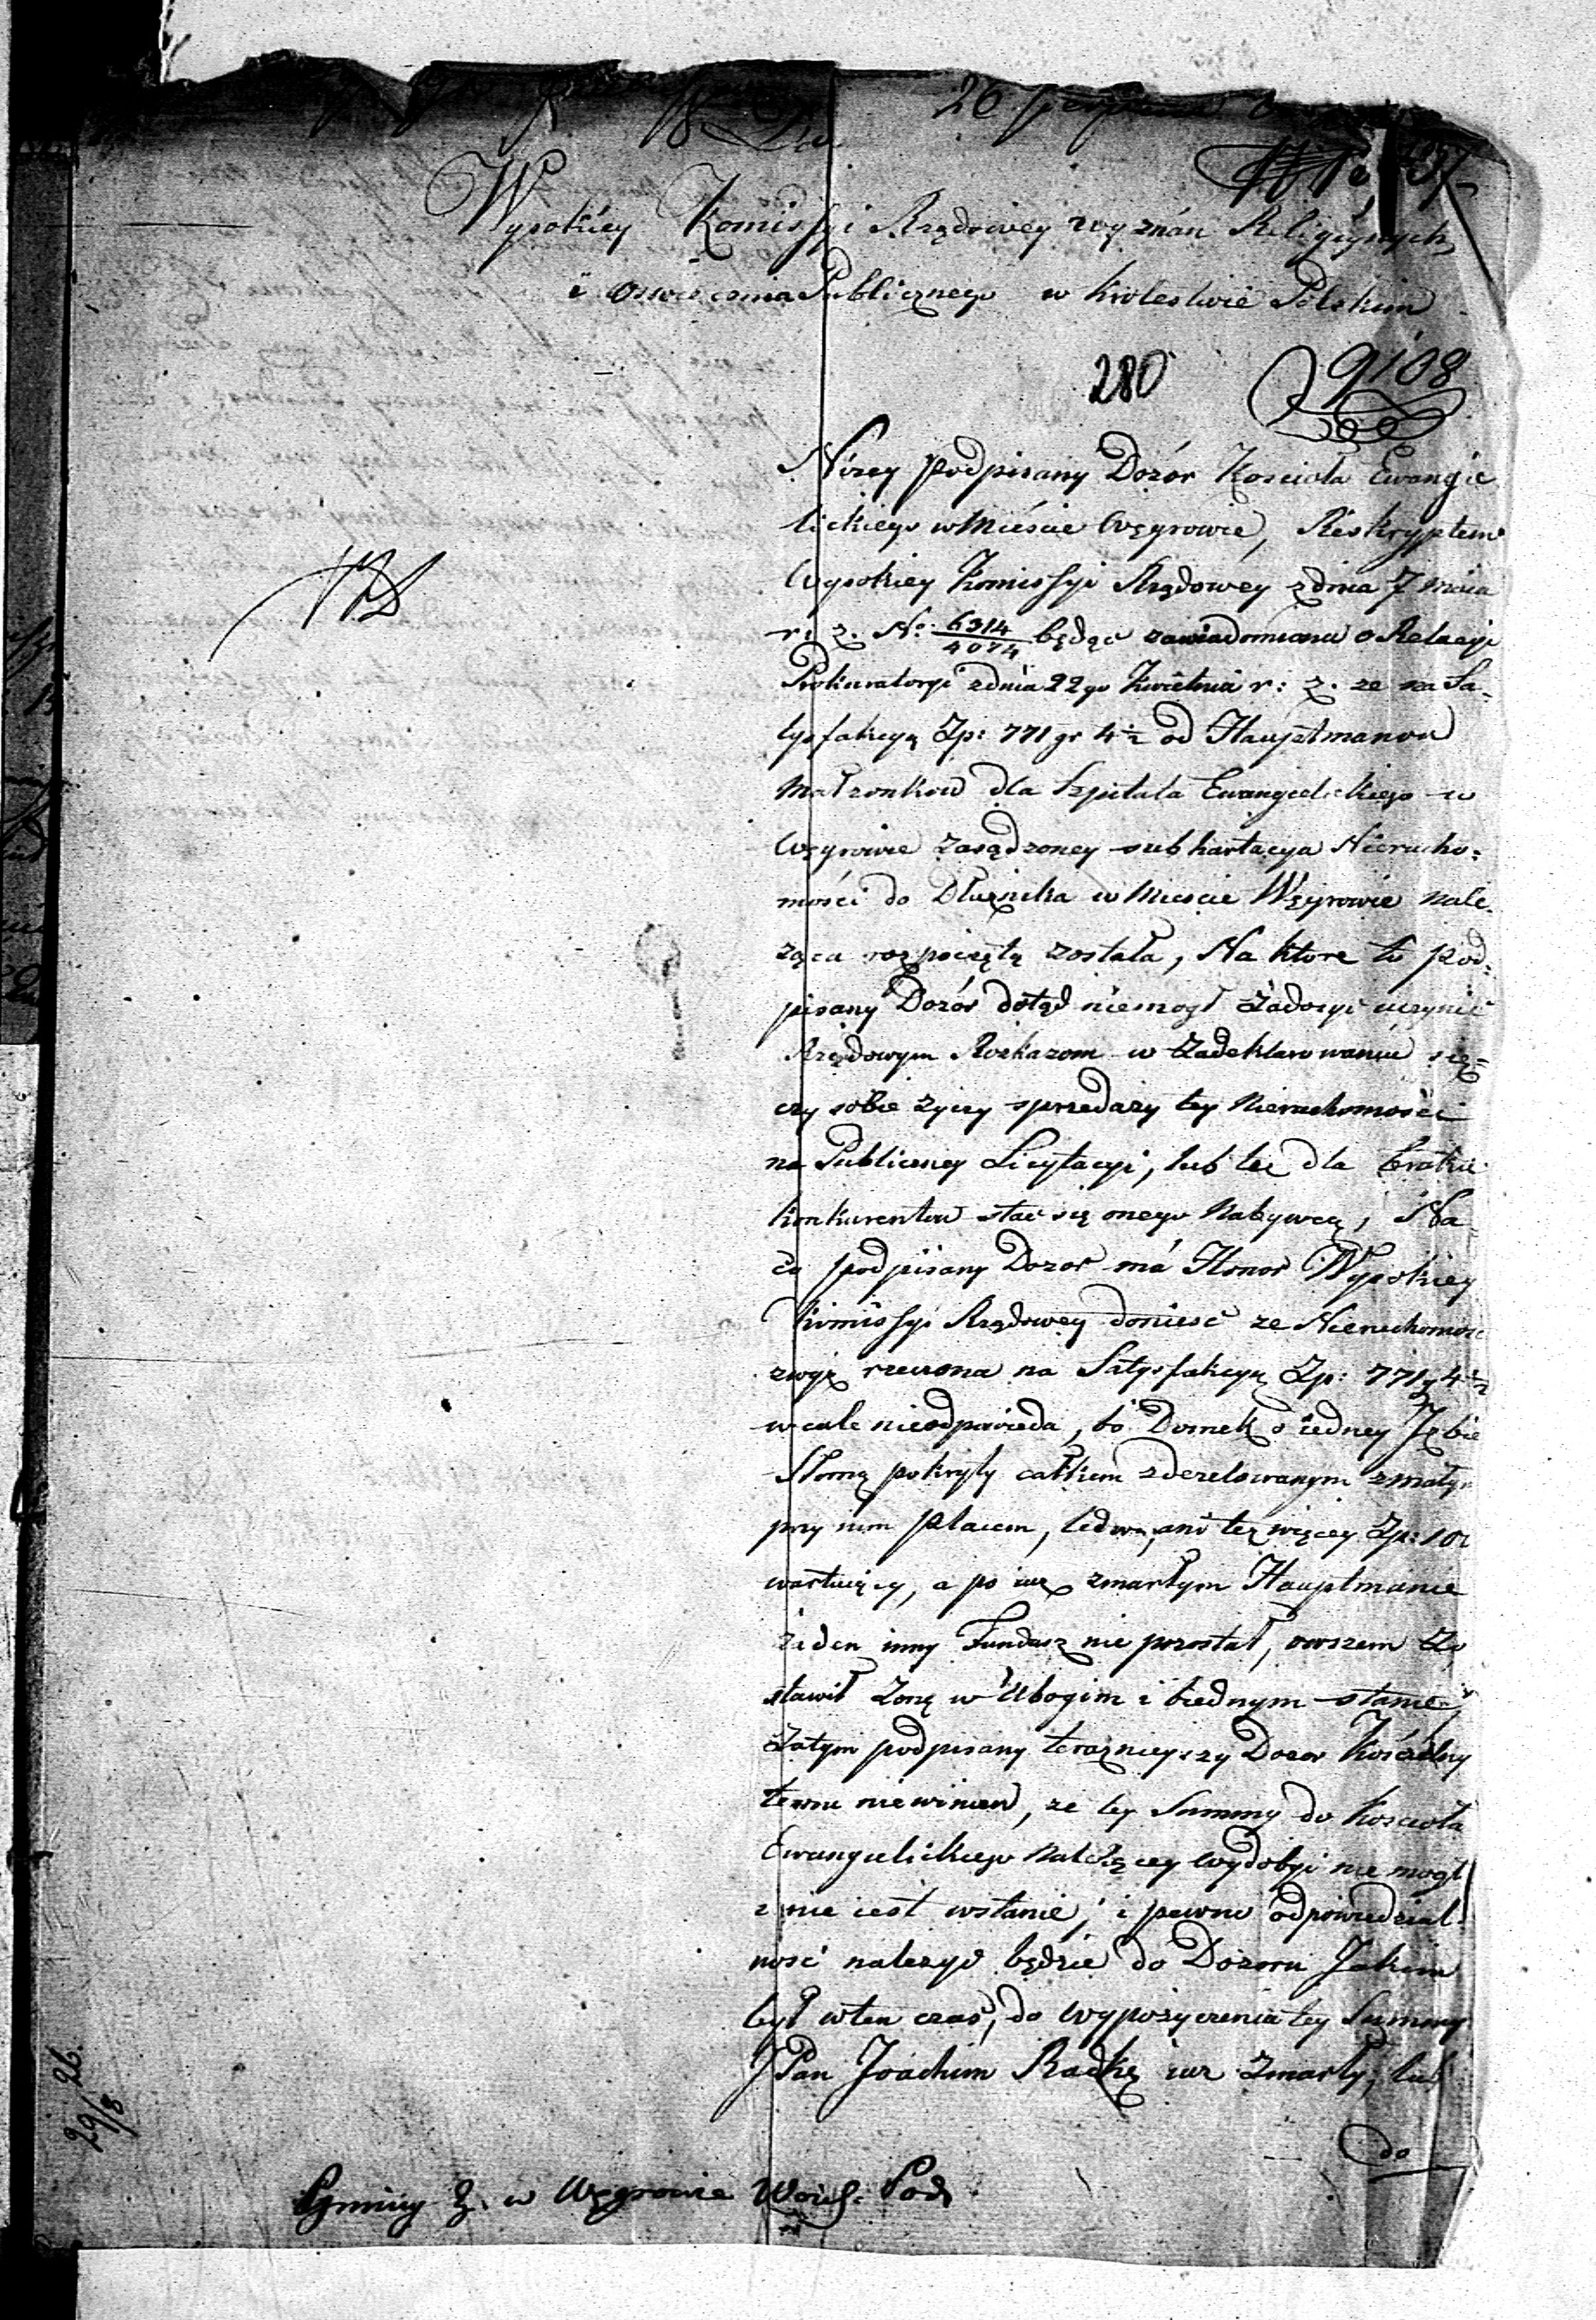 26
Wysokiéy Komissyi Rządowey wyznań Religiynych
i Oswiecenia Publicznego w Krolestwie Polskim
280 9108
Niżey podpisany Dozór Kosciola Ewangie
lickiego w Mieście Węgrowie, Reskryptem
Wysokiey Komissyi Rządowéy z dnia 7 Maia
r: z. No: 6314/4074 będąc zawiadomiona o Relacyi
Prokuratoryi z dnia 22go Kwietnia r: z. ze na Sa-
tysfakcyą Zp: 771 gr 4 1/2 od Hauptmanow
Małzonkow dla Szpitala Ewangielickiego w
Węgrowie zasądzoney subhastacya Nierucho-
mości do Dłuznika w Miescie Węgrowie nale-
żąca rozpoczętą została, Na ktore to pod-
pisany Dozór dotąd niemogł zadosyć uczynić
Rządowym Rozkazom w zadeklarowaniu się
czy sobie zyczy sprzedaży tey Nieruchomości
na Publiczney Licytacyi, lub tez dla braku
konkurentow stać się onego Nabywcą, Na
co podpisany Dozor má Honor Wysokiey
Komissyi Rządowey donieść ze Nieruchomosc
zwyż rzeczona na Satysfakcyą Zp: 771 g 4 1/2
wcale nieodpowieda, bo Domek o iedney Izbie
Słomą pokryty całkiem zdezelowanym z małym
przy nim placem, ledwo, ani też więcey Zp: 102
wartuiący, a po iuz zmarłym Hauptmanie
żaden inny Fundusz nie pozostał, owszem zo
stawił Zonę w Ubogim i biednym stanie
Zatym podpisany terazneyszy Dozor Kościelny
temu niewinien, ze tey Summy do Kosciola
Ewangielickiego należącey wydobyć nie mogł
i nie iest wstanie, i pewno odpowiedzial-
ność nalezyć będzie do Dozoru Jakim
był wten czas, do wypożyczenia tey Summy
JPan Joachim Radke iuz zmarły, lub
do
29/8 26.
Gminy Z. w Węgrowie Woief. Podl